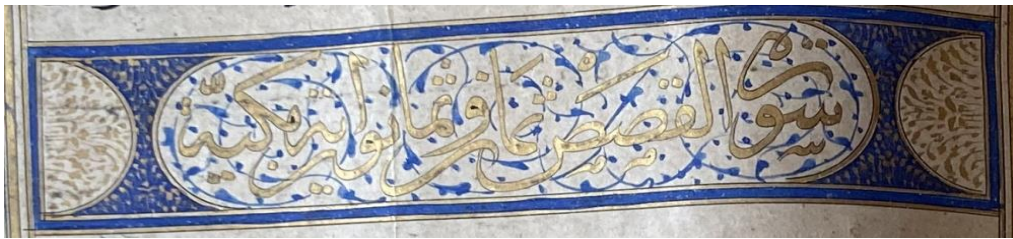 سورة القصص ثمان وثمانون اية مكية